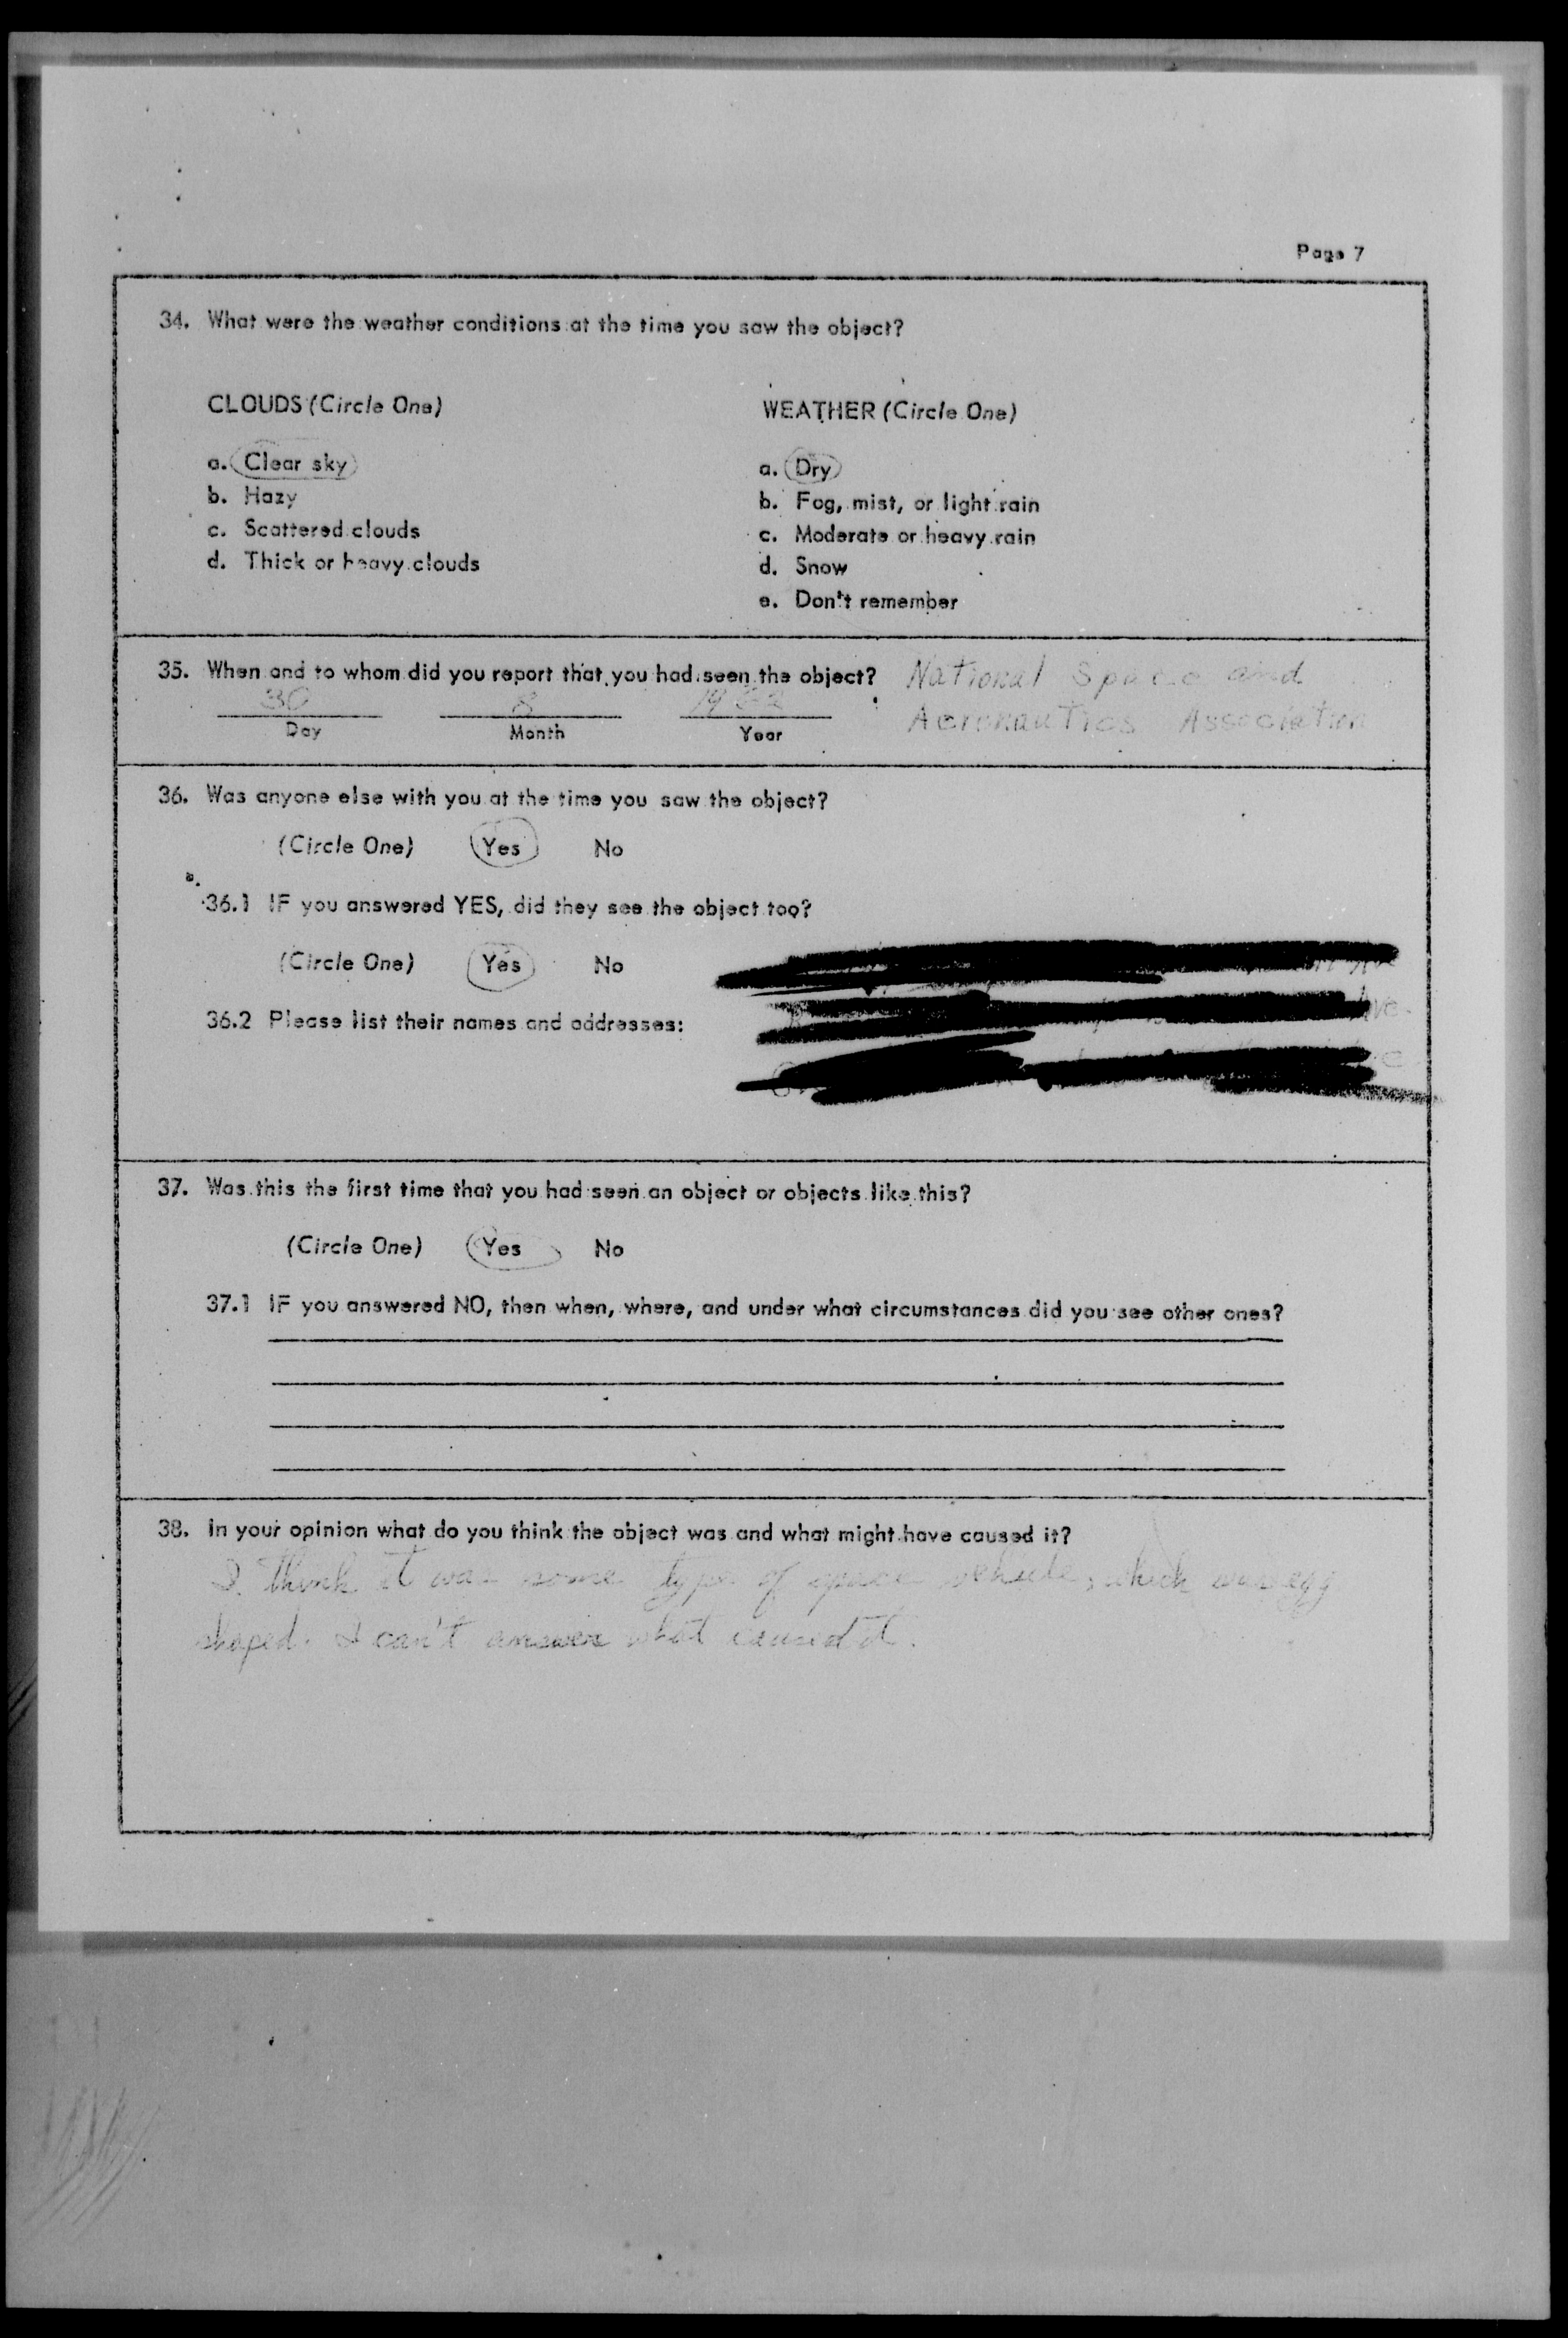 Page 7
34. What were the weather conditions at the time you saw the object?
CLOUDS (Circle One)
a. Clear sky
b. Hazy
c. Scattered clouds
d. Thick or heavy clouds
WEATHER (Circle One)
a. Dry
b. Fog, mist, or light rain
c. Moderate or heavy rain
d. Snow
e. Don't remember
35. When and to whom did you report that you had seen the object? National Space and
30 8
Aeronautics Association
Day Month Year
36. Was anyone else with you at the time you saw the object?
(Circle One) Yes No
36.1 IF you answered YES, did they see the object too?
(Circle One) Yes No
36.2 Please list their names and addresses:
37. Was this the first time that you had seen an object or objects like this?
(Circle One) Yes No
37.1 IF you answered NO, then when, where, and under what circumstances did you see other ones?
38. In your opinion what do you think the object was and what might have caused it?
I think it was some type of space vehicle, which was egg
shaped. I can't answer what caused it.